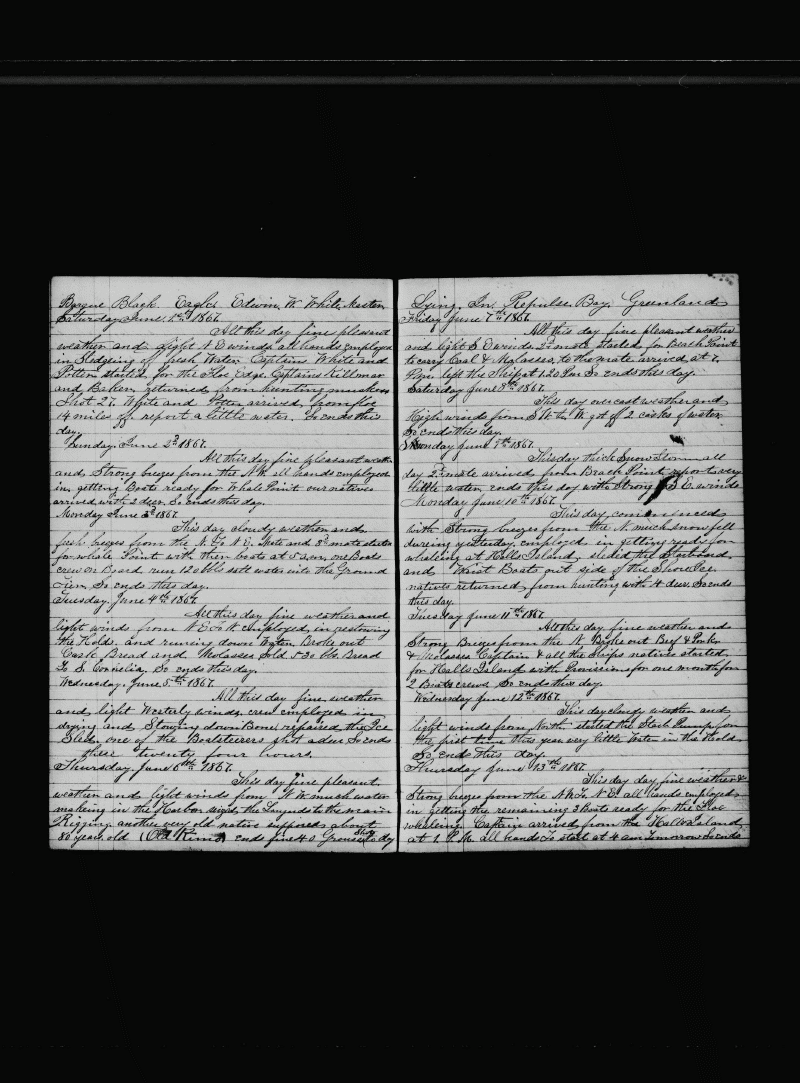 Barque Black Eagle, Edwin W White, Master
Saturday June 1st 1867
All this day fine pleasant
weather and light N E winds all hands employed
in Sledgeing of fresh Water Captains White and
Potter started for the Floe Edge Captains Killmer
and Baker returned from hunting muskox
Shot 27. White and Potter arrived from floe
14 miles off report a little water. So ends this
day.
Sunday June 2d 1867.
All this day fine pleasant weather
and Strong breezes from the N W all hands employed
in getting Boats ready for Whale Point our natives
arrived with 2 deer. So ends this day.
Monday June 3d 1867.
This day cloudy weather and
fresh breezes from the N. To N E. Mate and 3d mate started
for whale Point with their boats at 5 a.m, one Boats
crew on Board run 120 bbls salt water into the Ground
Tier, So ends this day.
Tuesday. June 4th 1867.
All this day fine weather and
light winds from N E To N. Employed in restowing
the Hold, and runing down Water Broke out
Cask Bread and Molasses Sold 530 lbs Bread
To S. Cornelia, So ends this day.
Wednesday. June 5th 1867.
All this day fine weather
and light Westerly winds, crew employed in
drying and Stowing down Bone, repaired the Ice
Sled, one of the Boatsteerers shot a deer So ends
these twenty four hours.
Thursday. June 6th 1867.
This day fine pleasant.
weather and light winds from N W much water
making in the Harbor the to the main
Rigging another very old native supposed about
80 years old (Old King) ends fine 40 Grouse Shot to day
Lying, In, Repulse, Bay, Greenland,
Friday June 7th 1867.
All this day fine pleasant weather
and light S E winds 2d mate started for Beach Point
to carry Coal & Molasses, to the mate arrived at 7,
P.m. left the Ship at 1.20 P.m So ends this day.
Saturday June 8th 1867.
This day overcast weather and
High winds from S W to W got off 2 casks of water
So ends this day.
Sunday June 9th 1867.
This day thick Snow Storm all
day 2d mate arrived from Beach Point report very
little water ends this day with Strong S E. winds
Monday June 10th 1867.
This day commenced
with Strong breezes from the N. much snow fell
dureing yesterday, employed in getting ready for
whaleing at Halls Island, sleded the Starboard
and Waist Boats out side of the Shore Ice.
natives returned from hunting with 4 deer. So ends
this day.
Tuesday June 11th 1867.
All this day fine weather and
Strong Breezes from the N. Broke out Beef & Pork
& Molasses Captain & all the Ships natives started
for Halls Island with Provisions for one month for
2 Boats crews So ends this day.
Wednesday June 12th 1867.
This day cloudy weather and
light winds from North. started the Pump for
the first time this year very little water in the Hold
So, ends this day.
Thursday June 13th 1867.
This day day, fine weather &
Strong breezes from the N W To N E all hands employed
in getting the remaining 3 Boats ready for the Floe
whaleing. Captain arrived from the Halls Island
at 1. P.M. all hands To start at 4 am tomorrow So ends